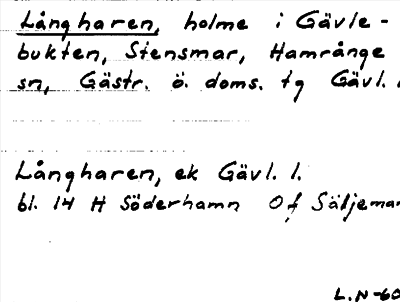 Långharen, holme i Gävle-
bukten, Stensmar, Hamrånge
sn, Gästr. ö. doms. tg Gävl.
Långharen, ek Gävl. l.
bl. 14 H Söderhamn Of
L.N-60